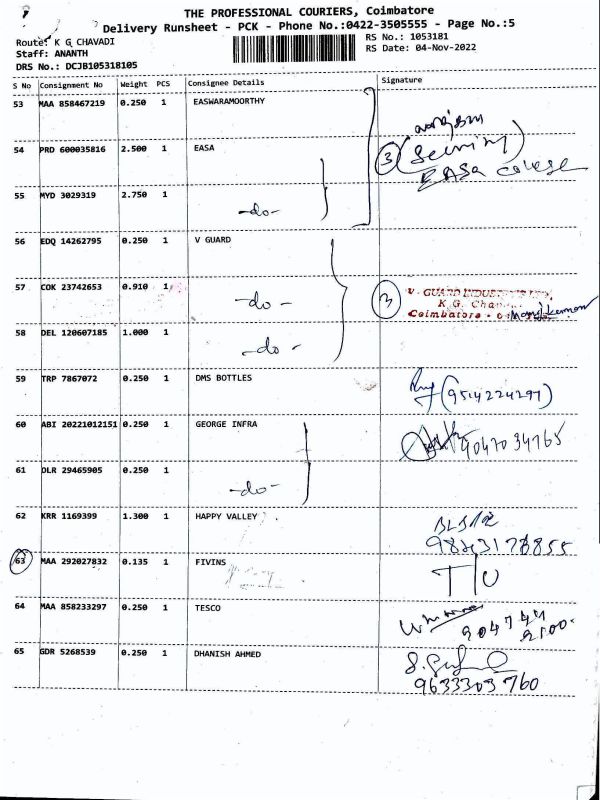 THE PROFESSIONAL COURIERS, Coimbatore
Delivery Runsheet - PCK - Phone No.:0422-3505555 - Page No.:5
Route: K G CHAVADI
RS No.: 1053181
Staff: ANANTH
RS Date: 04-Nov-2022
DRS No.: DCJB105318105
S No Consignment No Weight PCS Consignee Details Signature
53 MAA 858467219 0.250 1 EASWARAMOORTHY
54 PRD 600035816 2.500 1 EASA
3 Security
EASA College
55 MYD 3029319 2.750 1 -do-
56 EDQ 14262795 0.250 1 V GUARD
57 COK 23742653 0.910 1 -do-
3 V-GUARD INDUSTRIES LTD,
K.G. Chavadi
Coimbatore
58 DEL 120607185 1.000 1 -do-
59 TRP 7867072 0.250 1 DMS BOTTLES
(9514224297)
60 ABI 20221012151 0.250 1 GEORGE INFRA
9047034765
61 DLR 29465905 0.250 1 -do-
62 KRR 1169399 1.300 1 HAPPY VALLEY
63 MAA 292027832 0.135 1 FIVINS T/U
64 MAA 858233297 0.250 1 TESCO
65 GDR 5268539 0.250 1 DHANISH AHMED
9633303760